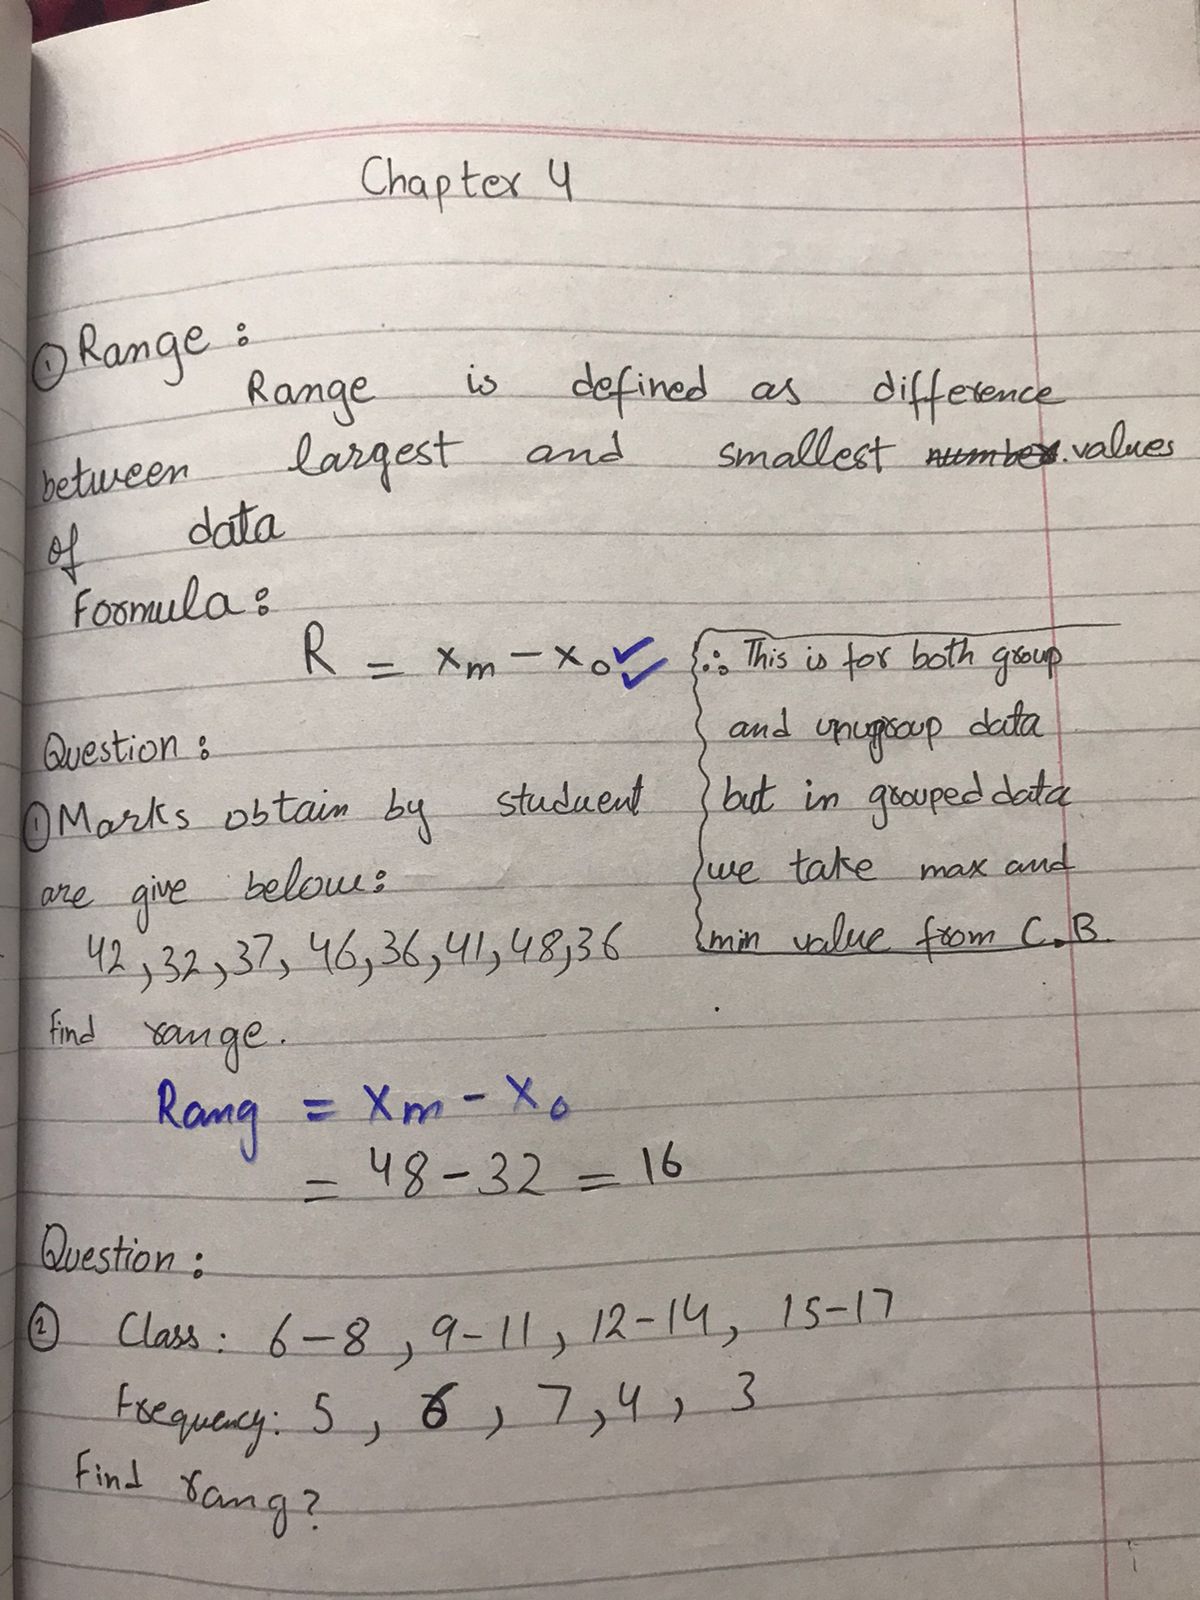 Chapter 4
① Range :
Range is defined as difference
between largest and smallest number. values
of data
Formula :
R = xm - x0
∴ This is for both group
and unugroup data
but in grouped data
we take max and
min value from C.B.
Question :
① Marks obtain by studuent
are give below :
42, 32, 37, 46, 36, 41, 48, 36
find range.
Rang = xm - x0
= 48 - 32 = 16
Question :
② Class : 6-8, 9-11, 12-14, 15-17
Frequency : 5, 6, 7, 4, 3
Find rang?